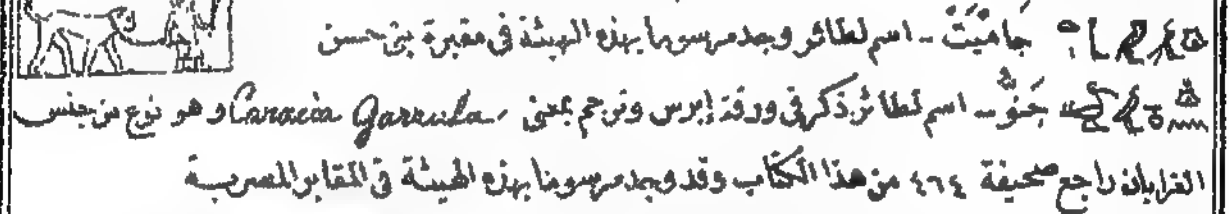 جَامِيَتْ ـ اسم لطائر وجد مرسوما بهذه الهيئة فى مقبرة بنى حسن
جَنُّو ـ اسم لطائر ذكر فى ورقة إبرس وترجم بمعنى Garrula وهو نوع من جنس
الغرابان راجع صحيفة ٤٦٤ من هذا الكتاب وقد وجد مرسوما بهذه الهيئة فى المقابر المصرية